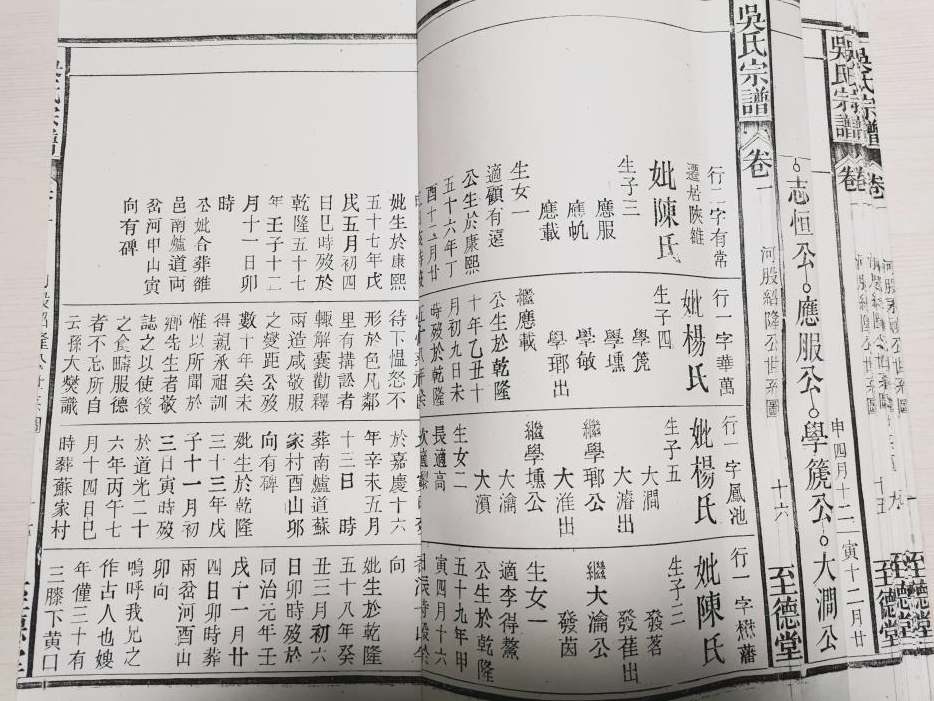 吳氏宗譜
卷
河股紹隆公世系圖
至德堂
申四月十二
寅十二月廿
志恒公
應服公
學篪公
大澗公
吳氏宗譜
卷一
河股紹隆公世系圖
十六
至德堂
行二字有常
遷居陝雒
妣陳氏
生子三
應服
應帆
應載
生女一
適顧有逵
公生於康熙
五十六年丁
酉十二月廿
妣生於康熙
五十七年戊
戌五月初四
日巳時歿於
乾隆五十七
年壬子十二
月十一日卯
時
公妣合葬雒
邑南爐道両
岔河甲山寅
向有碑
行一字華萬
妣楊氏
生子四
學篪
學壎
學敏
學瑘出
繼應載
公生於乾隆
十年乙丑十
月初九日未
時歿於乾隆
待下慍怒不
形於色凡鄰
里有搆訟者
輒解囊勸釋
兩造咸敬服
之變距公歿
數十年矣未
得親承祖訓
惟以所聞於
鄉先生者敬
誌之以使後
之食疇服德
者不忘所自
云孫大爕識
行一字鳳池
妣楊氏
生子五
大澗
大濬出
繼學瑘公
大淮出
繼學壎公
大瀹
大濱
生女二
長適高
於嘉慶十六
年辛未五月
十三日 時
葬南爐道蘇
家村酉山卯
向有碑
妣生於乾隆
三十三年戊
子十一月初
三日寅時歿
於道光二十
六年丙午七
月十四日巳
時葬蘇家村
行一字楙藩
妣陳氏
生子三
發茗
發萑出
繼大瀹公
發茵
生女一
適李得鰲
公生於乾隆
五十九年甲
寅四月十六
向
妣生於乾隆
五十八年癸
丑三月初六
日卯時歿於
同治元年壬
戌十一月廿
四日卯時葬
兩岔河酉山
卯向
嗚呼我兄之
作古人也嫂
年僅三十有
三膝下黄口